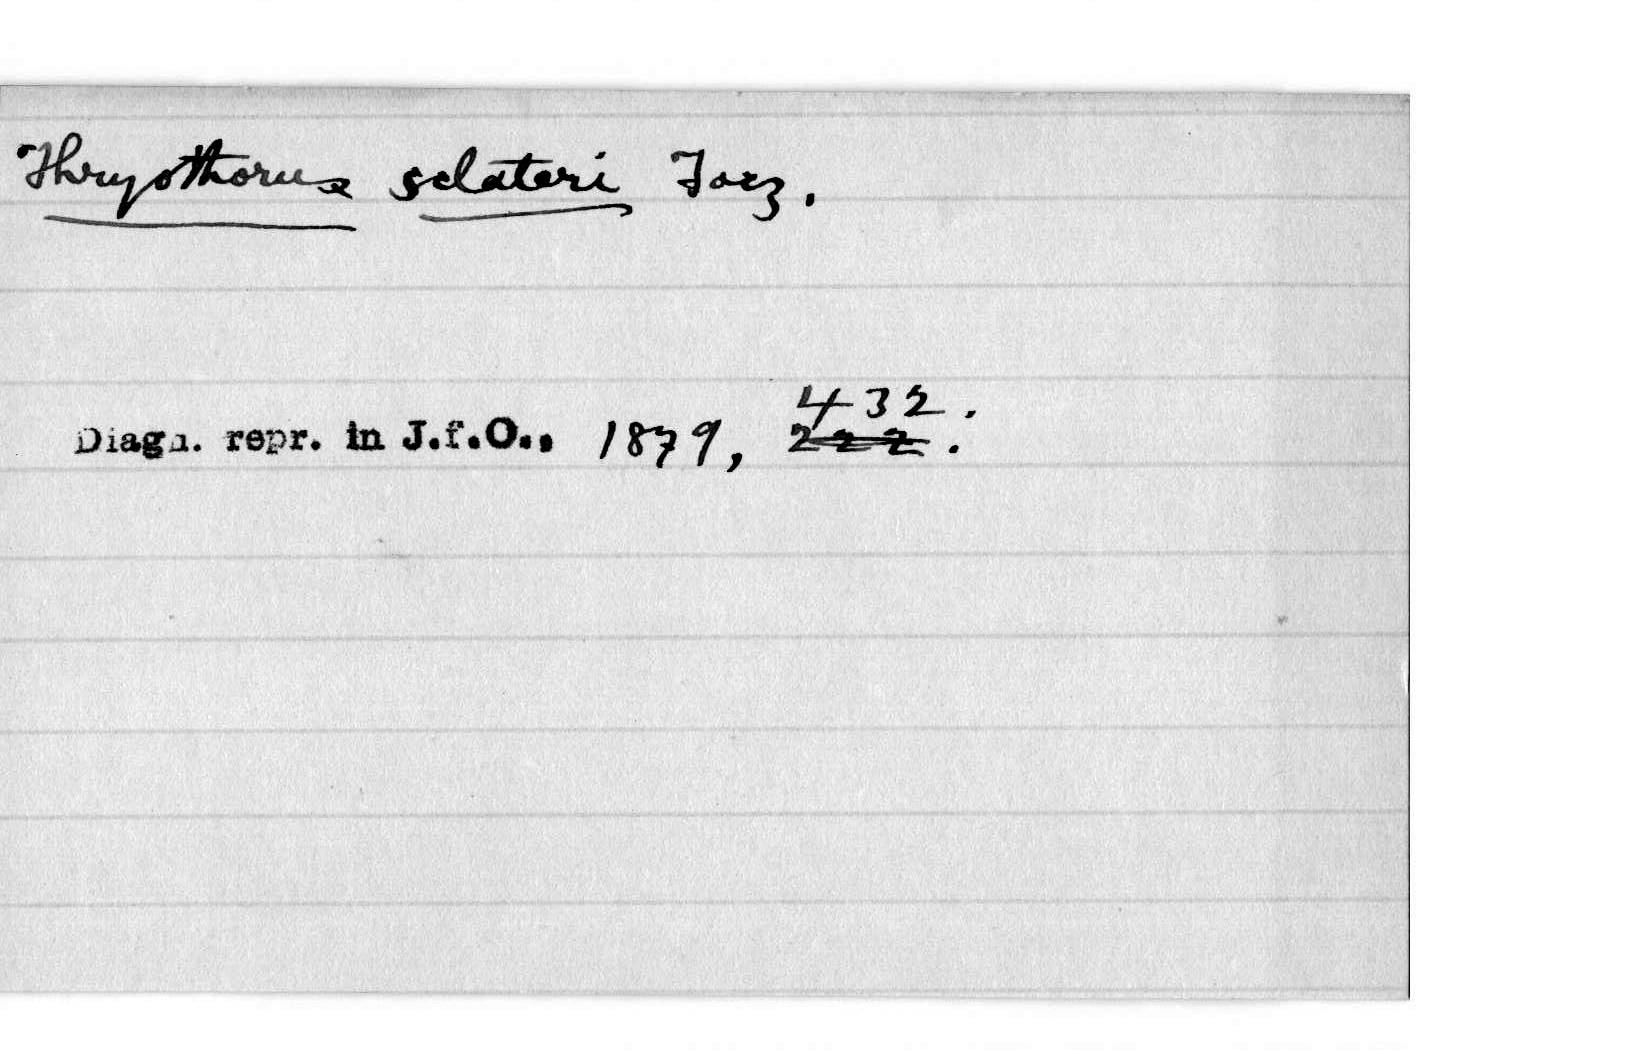 Thryothorus sclateri Tacz.
432.
Diagn. repr. in J.f.O., 1879, 222.